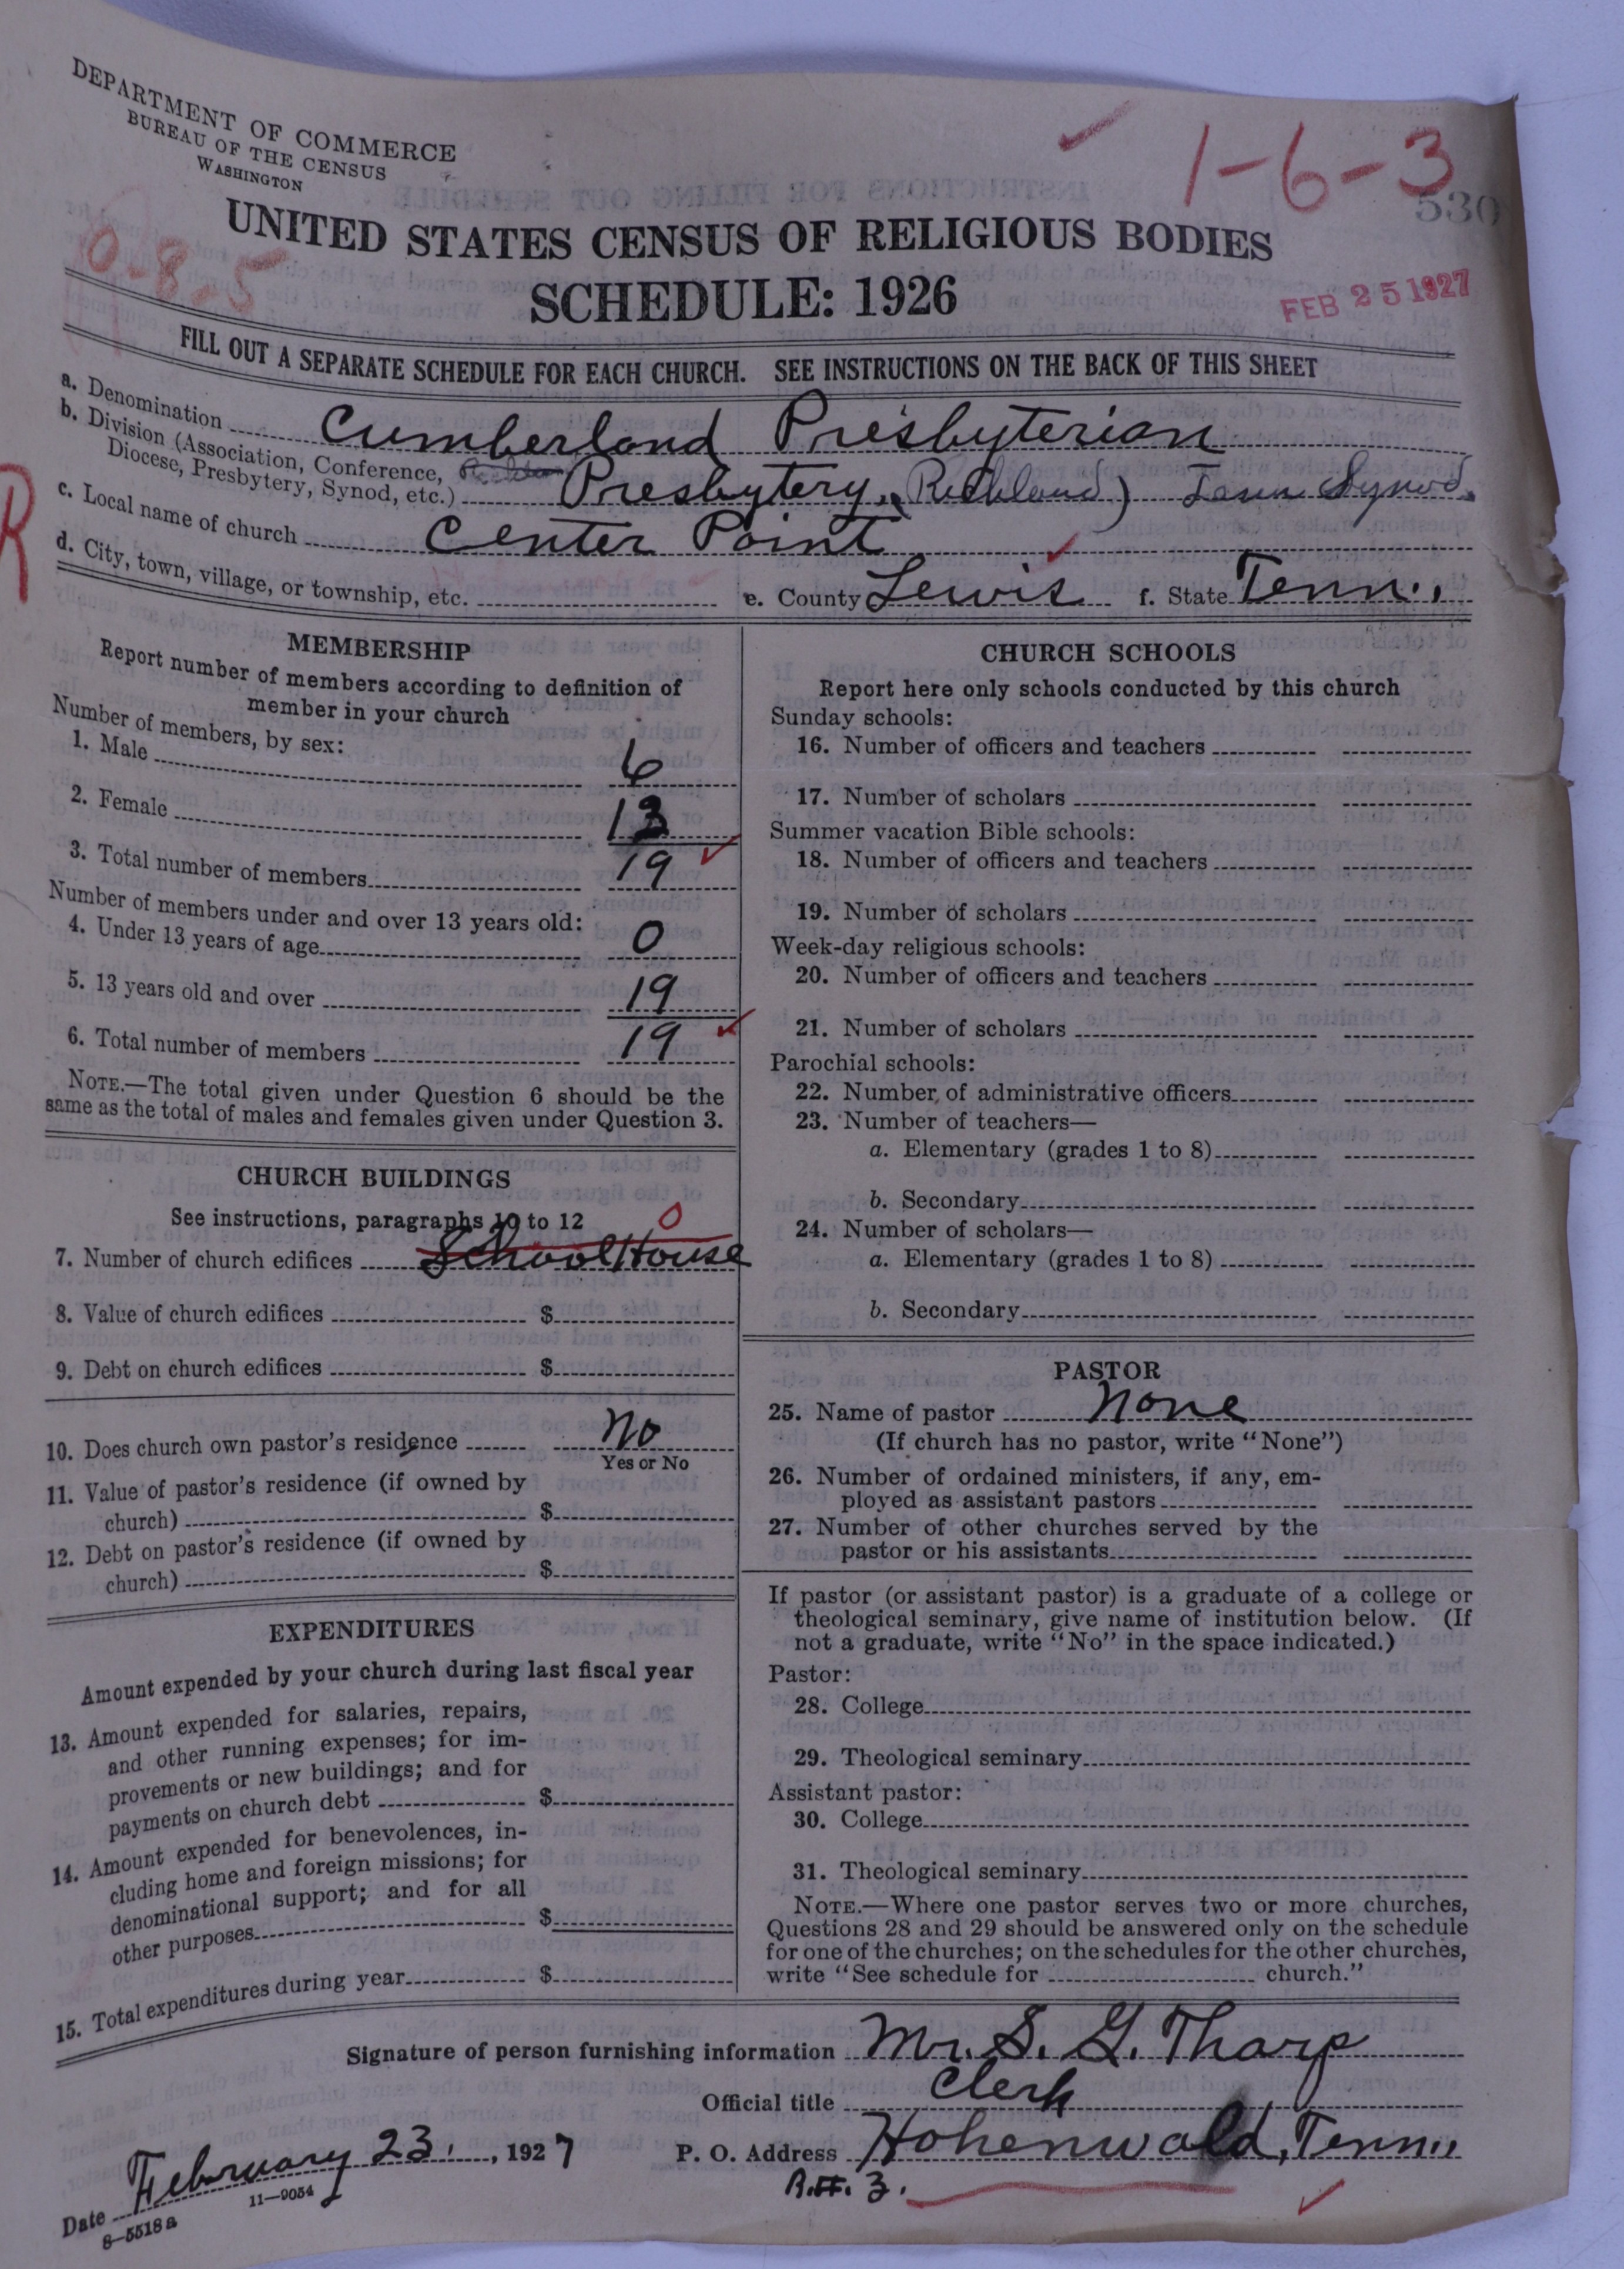 DEPARTMENT OF COMMERCE
BUREAU OF THE CENSUS
WASHINGTON
1-6-3
530
0-8-5
UNITED STATES CENSUS OF RELIGIOUS BODIES
SCHEDULE: 1926
FEB 25 1927
FILL OUT A SEPARATE SCHEDULE FOR EACH CHURCH. SEE INSTRUCTIONS ON THE BACK OF THIS SHEET
a. Denomination Cumberland Presbyterian
b. Division (Association, Conference,
Diocese, Presbytery, Synod, etc.) Presbytery, (Richland) Tenn Synod.
c. Local name of church Center Point
R
d. City, town, village, or township, etc. e. County Lewis f. State Tenn.,
MEMBERSHIP
Report number of members according to definition of
member in your church
Number of members, by sex:
1. Male 6
2. Female 13
3. Total number of members 19
Number of members under and over 13 years old:
4. Under 13 years of age 0
5. 13 years old and over 19
6. Total number of members 19
NOTE.—The total given under Question 6 should be the
same as the total of males and females given under Question 3.
CHURCH BUILDINGS
See instructions, paragraphs 10 to 12
0
7. Number of church edifices School House
8. Value of church edifices $
9. Debt on church edifices $
10. Does church own pastor's residence No
Yes or No
11. Value of pastor's residence (if owned by
church) $
12. Debt on pastor's residence (if owned by
church) $
EXPENDITURES
Amount expended by your church during last fiscal year
13. Amount expended for salaries, repairs,
and other running expenses; for im-
provements or new buildings; and for
payments on church debt $
14. Amount expended for benevolences, in-
cluding home and foreign missions; for
denominational support; and for all
other purposes $
15. Total expenditures during year $
CHURCH SCHOOLS
Report here only schools conducted by this church
Sunday schools:
16. Number of officers and teachers
17. Number of scholars
Summer vacation Bible schools:
18. Number of officers and teachers
19. Number of scholars
Week-day religious schools:
20. Number of officers and teachers
21. Number of scholars
Parochial schools:
22. Number of administrative officers
23. Number of teachers—
a. Elementary (grades 1 to 8)
b. Secondary
24. Number of scholars—
a. Elementary (grades 1 to 8)
b. Secondary
PASTOR
25. Name of pastor None
(If church has no pastor, write "None")
26. Number of ordained ministers, if any, em-
ployed as assistant pastors
27. Number of other churches served by the
pastor or his assistants
If pastor (or assistant pastor) is a graduate of a college or
theological seminary, give name of institution below. (If
not a graduate, write "No" in the space indicated.)
Pastor:
28. College
29. Theological seminary
Assistant pastor:
30. College
31. Theological seminary
NOTE.—Where one pastor serves two or more churches,
Questions 28 and 29 should be answered only on the schedule
for one of the churches; on the schedules for the other churches,
write "See schedule for church."
Signature of person furnishing information Mr. S. G. Tharp
Official title Clerk
Date February 23, 1927 P. O. Address Hohenwald, Tenn.
11—9054
R.#. 3.
8—5518 a